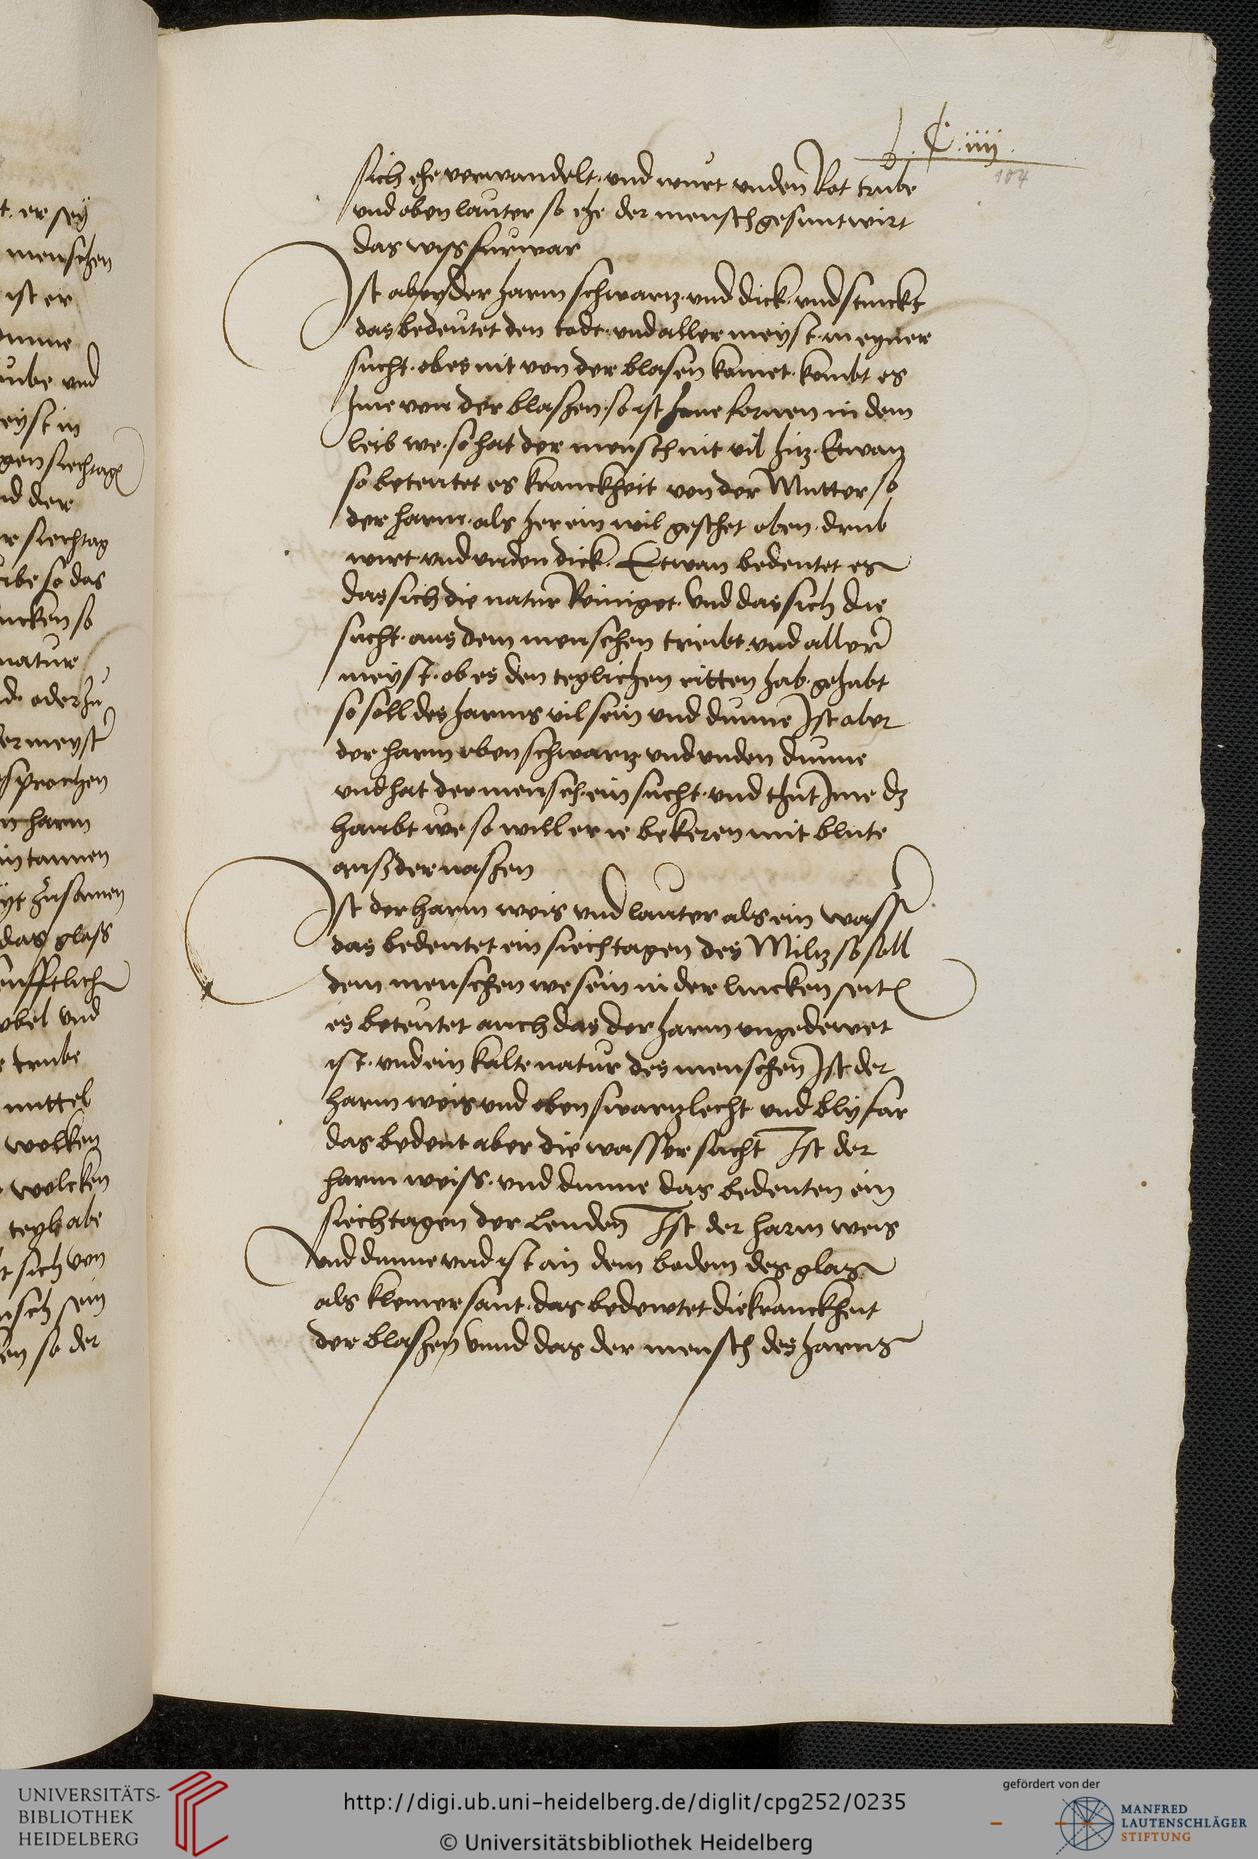 C iiij
104
sich ehe verwandelt. und wurt unden Rot trube
und oben lauter so ehe der mensch gesunt wirt
das wiss furwar
Ist aber der harm schwartz. und dick. und stinckt
das bedeutet den todt. und aller meyst. in eyner
sucht. ob es nit von der blasen komet. kombt es
Ime von der blaßen. so ist Ime fornen in dem
leib we. so hat der mensch nit vil hitz. Etwan
so beteutet es kranckheit von der Mutter so
der harm. als her ein wil geschet oben. drub
wirt. und unden dick. Etwan bedeutet es
das sich die natur Reiniget. Und das sich die
sucht. aus dem menschen treibt. und aller
meyst. ob es den teglichen ritten hab. gehabt
so soll des harms vil sein und dunne Ist aber
der harm oben schwartz und unden dunne
und hat der mensch ein sucht. und thut Ime dz
haubt we so will er ie bekeren mit blute
auß der naßen
Ist der harm weis und lauter als ein wasser
das bedeutet ein siechtagen des Miltz so soll
dem menschen we sein in der lincken seiten
es beteutet auch das der harm ungedewet
ist. und ein kalte natur des menschen Ist der
harm weis und oben swartzlecht und blyfar
das bedeut aber die wasser sucht Ist der
harm weiss. und dunne das bedeuten ein
siechtagen der lenden Ist der harm weis
und dunne und ist an dem bodem des glas
als kleiner sant. das bedewtet die kranckheit
der blaßen Unnd das der mensch des harns
t. er sey
menschen
ist er
dunne
trube und
meyst in
gen siechtagen
und der
siechtag
so das
so
natur
oder zu
aller meyst
gesprochen
harm
zusamen
das glass
ubel und
trube
mittel
wolken
wolcken
sich von
sein
so der
UNIVERSITÄTS-
BIBLIOTHEK
HEIDELBERG
http://digi.ub.uni-heidelberg.de/diglit/cpg252/0235
© Universitätsbibliothek Heidelberg
gefördert von der
MANFRED
LAUTENSCHLÄGER
STIFTUNG